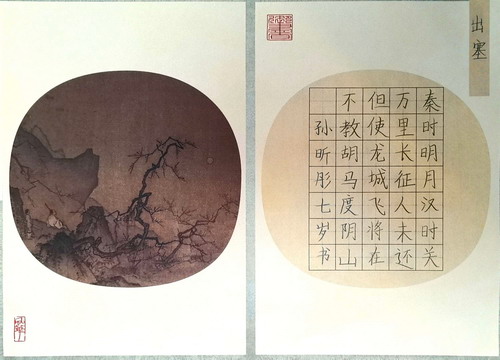 出塞
秦时明月汉时关
万里长征人未还
但使龙城飞将在
不教胡马度阴山
孙昕彤七岁书